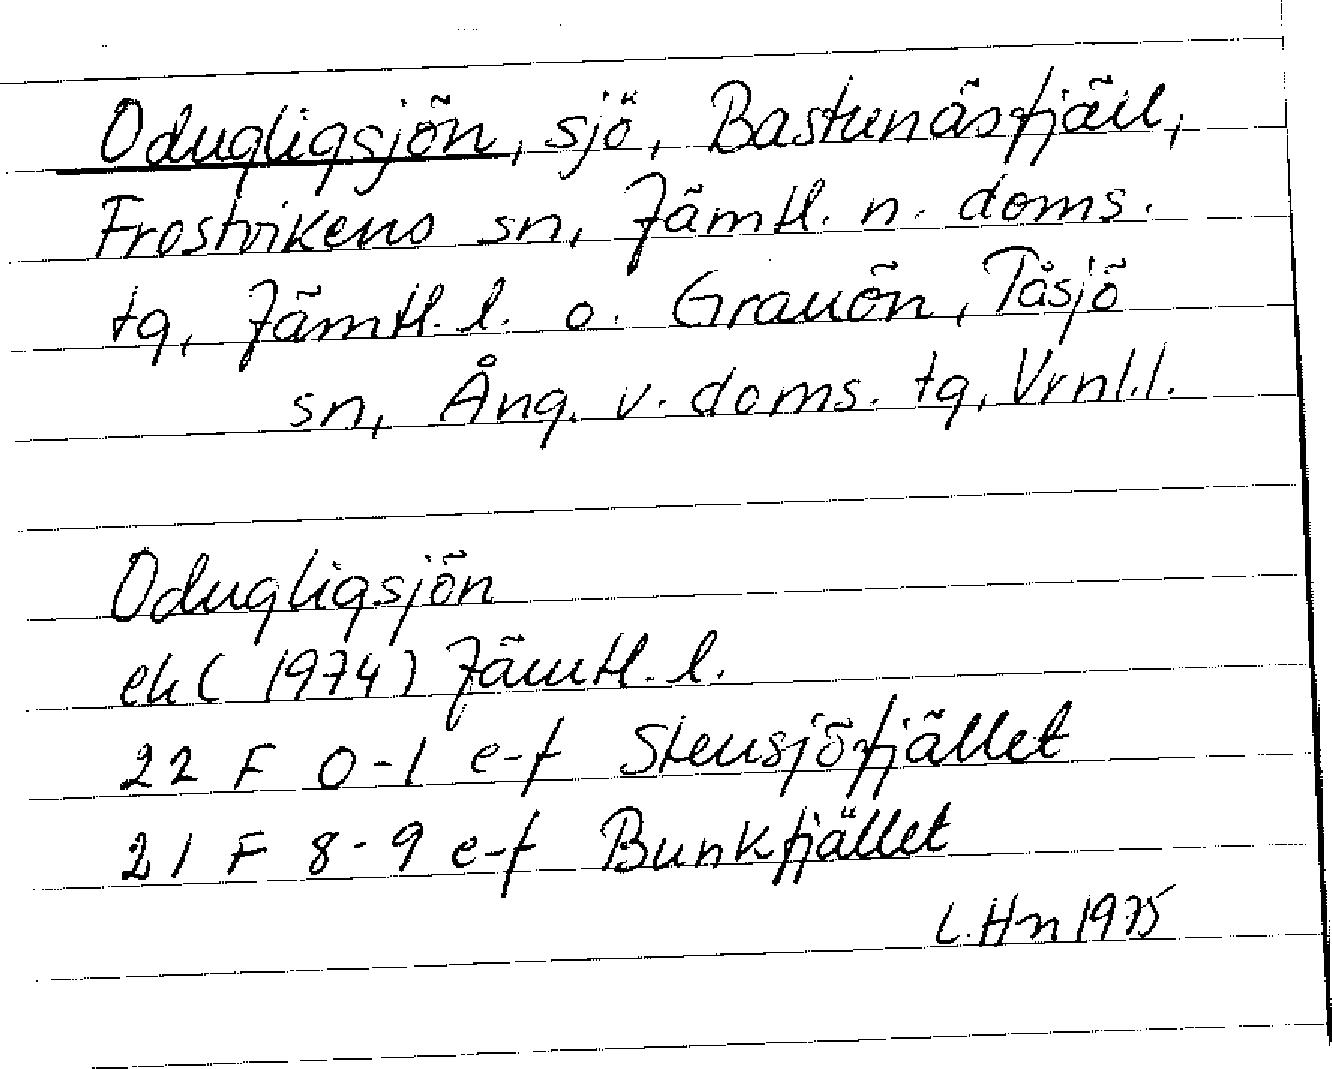 Odugligsjön, sjö, Bastunäsfjäll,
Frostvikens sn, Jämtl. n. doms.
tg, Jämtl. l. o. Grauön, Tåsjö
sn, Ång. v. doms. tg, Vrnl.l.
Odugligsjön
ek (1974) Jämtl. l.
22 F 0-1 e-f Stensjöfjället
21 F 8-9 e-f Bunkfjället
L. Hn 1975